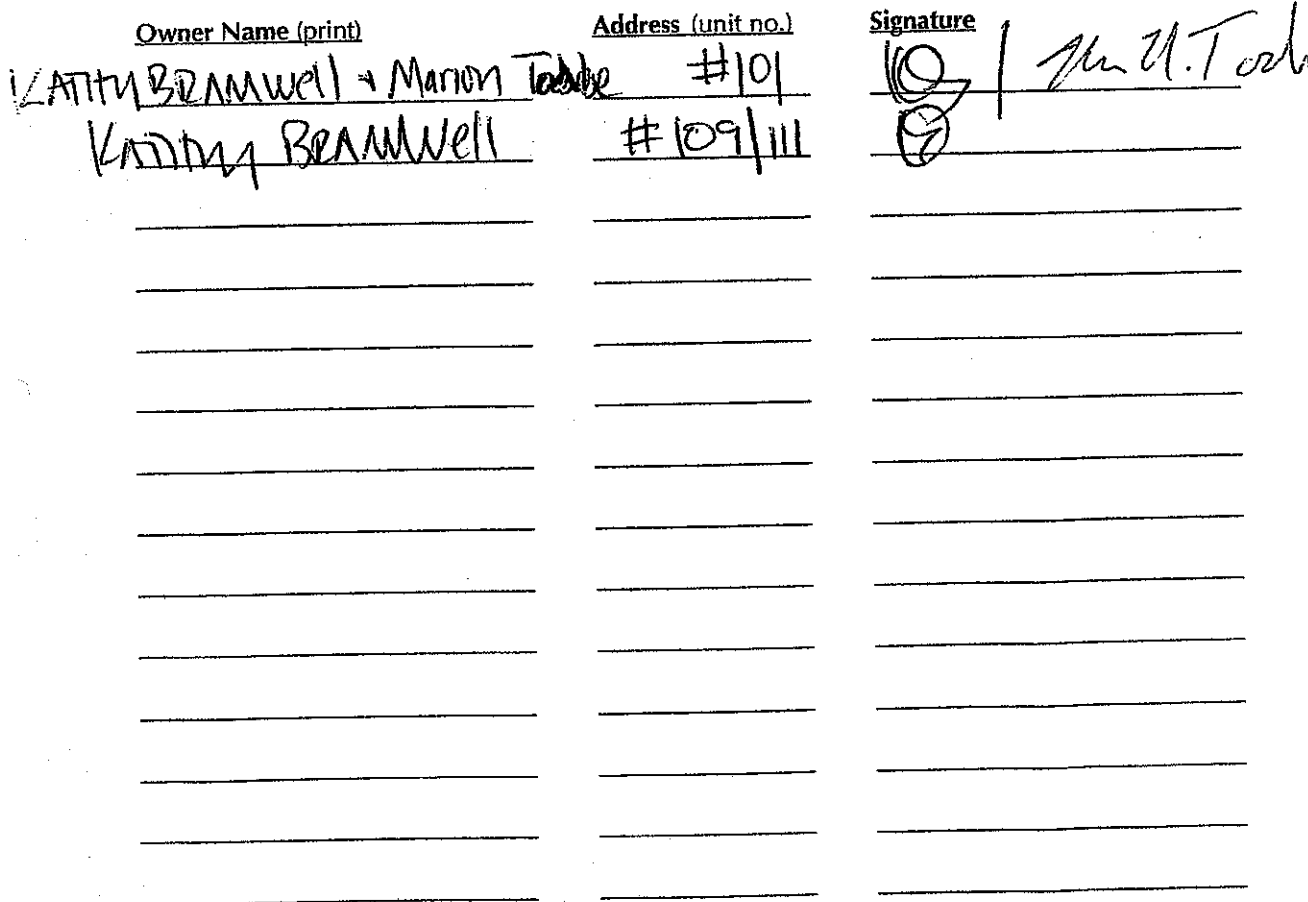 Owner Name (print) Address (unit no.) Signature
KATHY BRAMWell + Marion #101
KATHY BRAMWell #109/111